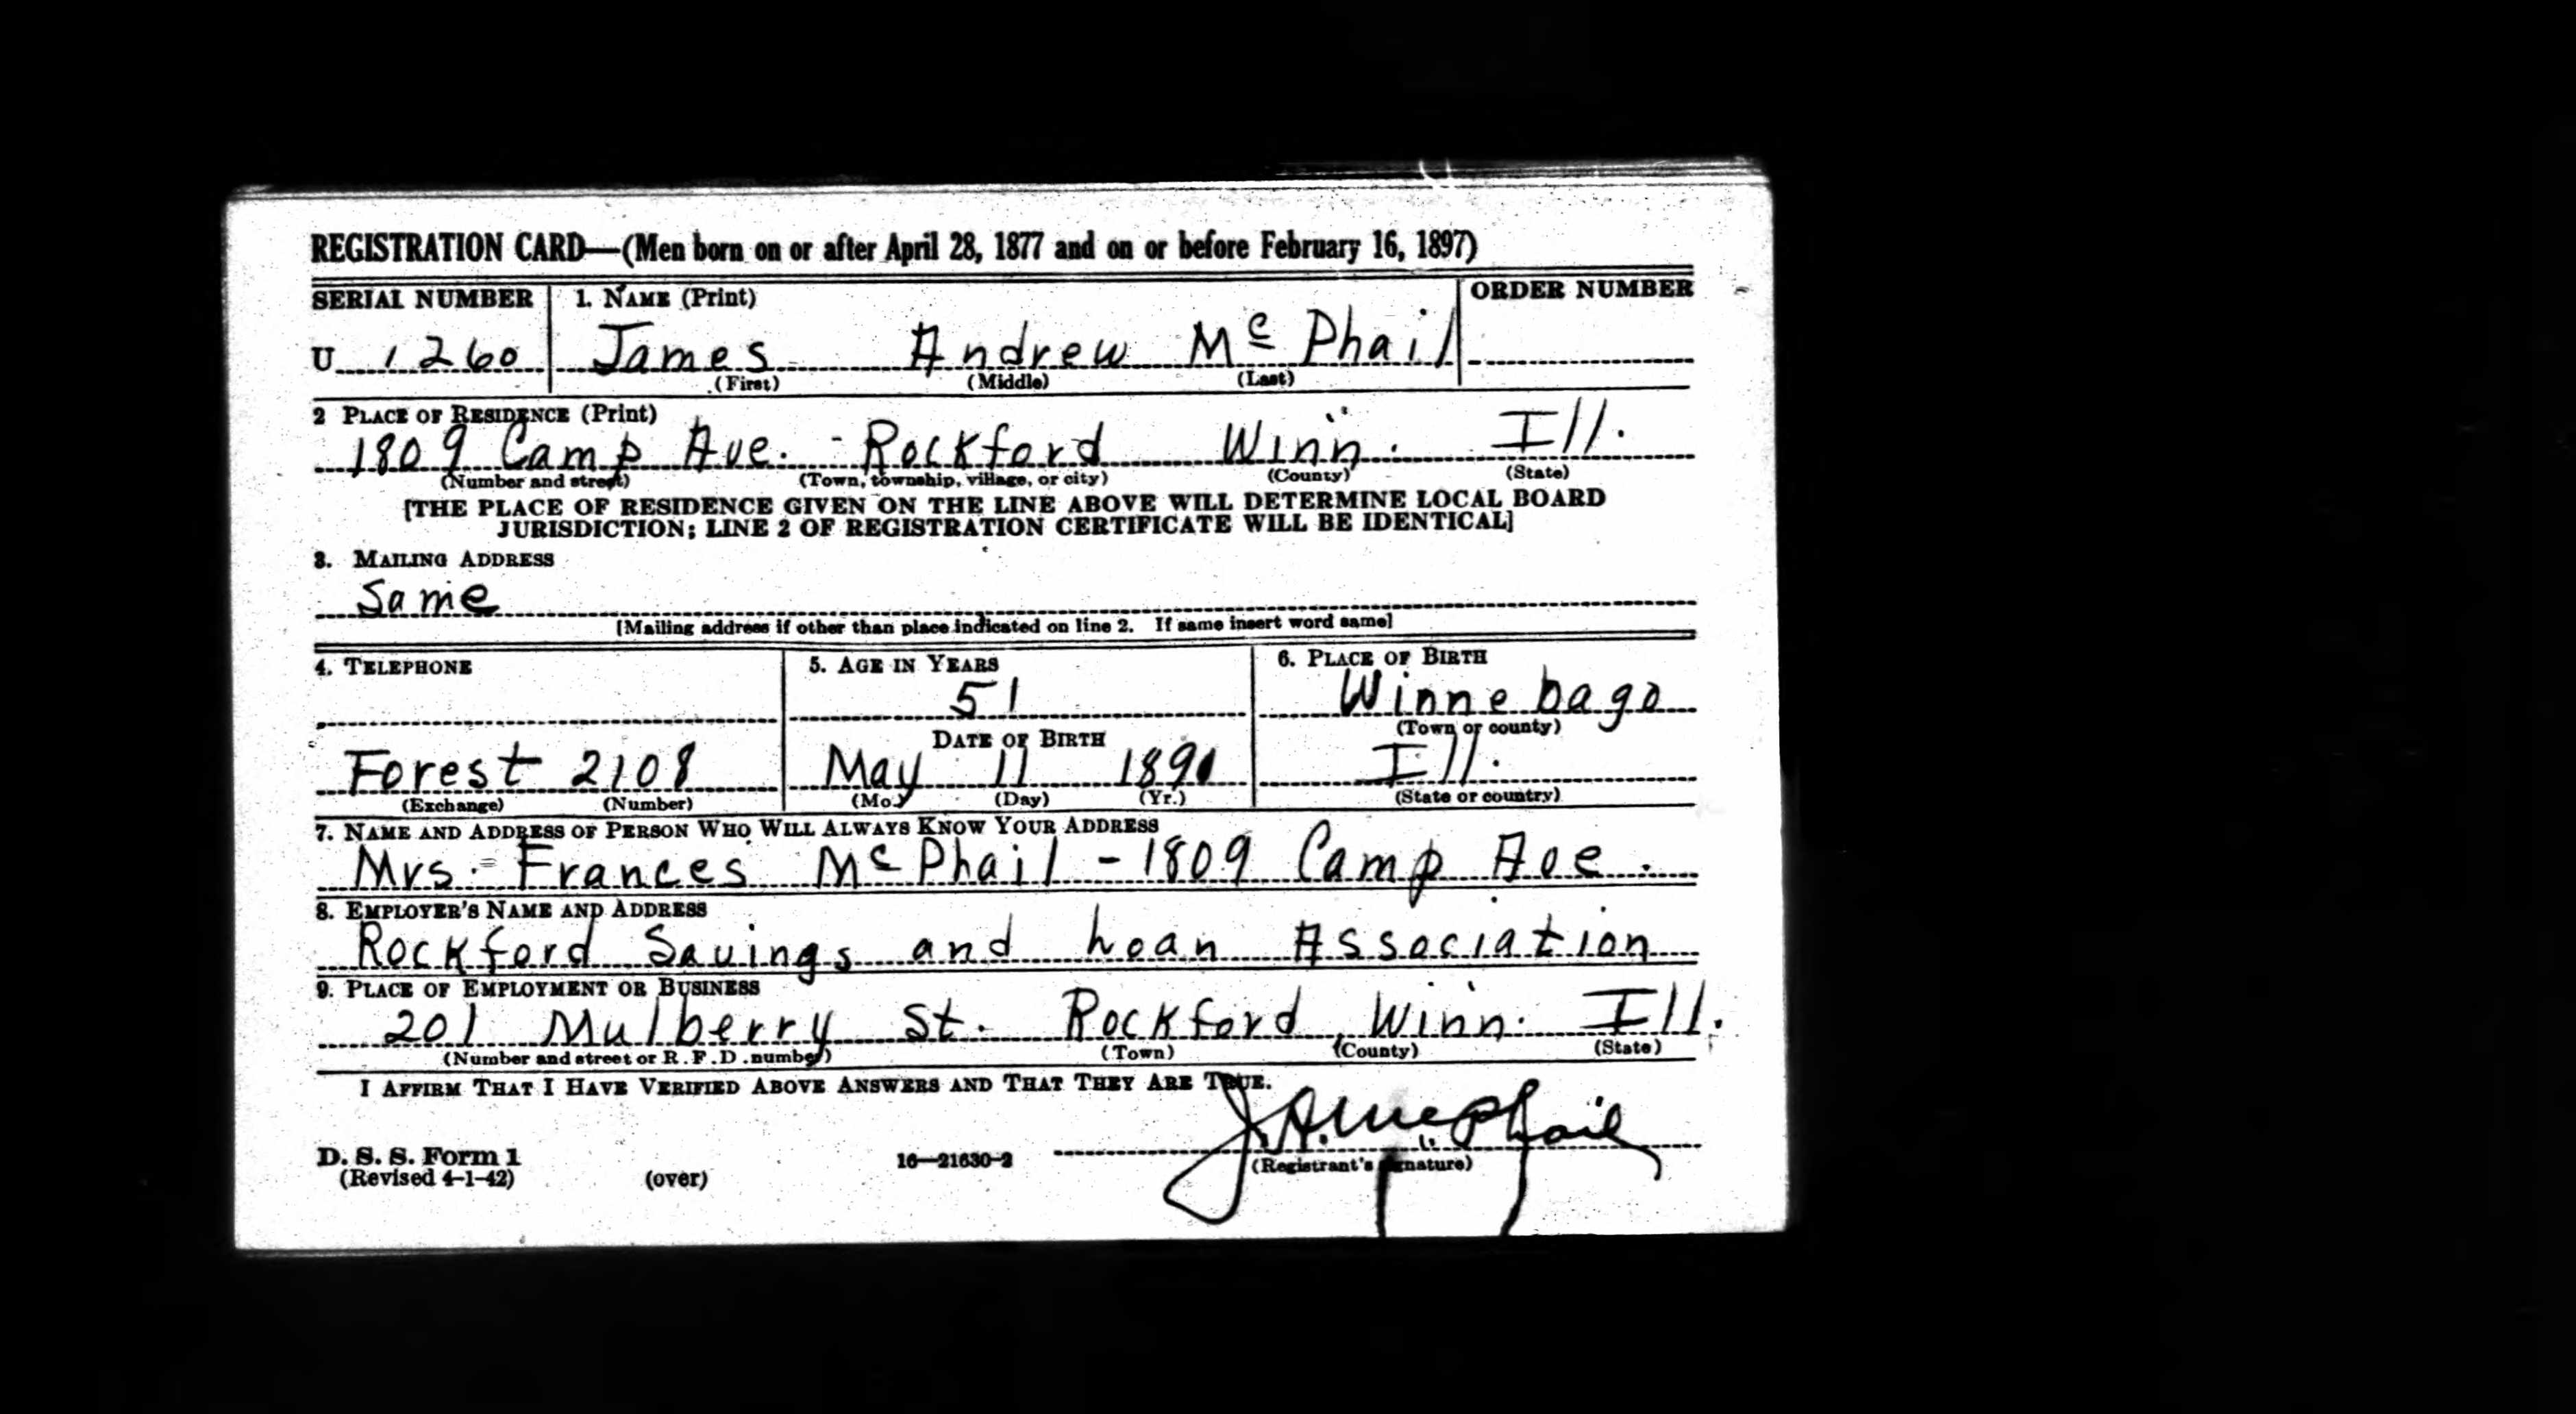 REGISTRATION CARD—(Men born on or after April 28, 1877 and on or before February 16, 1897)
SERIAL NUMBER 1. NAME (Print) ORDER NUMBER
U 1260 James Andrew McPhail
(First) (Middle) (Last)
2 PLACE OF RESIDENCE (Print)
1809 Camp Ave. - Rockford Winn. Ill.
(Number and street) (Town, township, village, or city) (County) (State)
[THE PLACE OF RESIDENCE GIVEN ON THE LINE ABOVE WILL DETERMINE LOCAL BOARD
JURISDICTION; LINE 2 OF REGISTRATION CERTIFICATE WILL BE IDENTICAL]
3. MAILING ADDRESS
Same
[Mailing address if other than place indicated on line 2. If same insert word same]
4. TELEPHONE 5. AGE IN YEARS 6. PLACE OF BIRTH
51 Winnebago
DATE OF BIRTH (Town or county)
Forest 2108 May 11 1891 Ill.
(Exchange) (Number) (Mo.) (Day) (Yr.) (State or country)
7. NAME AND ADDRESS OF PERSON WHO WILL ALWAYS KNOW YOUR ADDRESS
Mrs. Frances McPhail - 1809 Camp Ave.
8. EMPLOYER'S NAME AND ADDRESS
Rockford Savings and Loan Association
9. PLACE OF EMPLOYMENT OR BUSINESS
201 Mulberry St. Rockford, Winn. Ill.
(Number and street or R.F.D. number) (Town) (County) (State)
I AFFIRM THAT I HAVE VERIFIED ABOVE ANSWERS AND THAT THEY ARE TRUE.
J.A. McPhail
D. S. S. Form 1 16—21630-2 (Registrant's signature)
(Revised 4-1-42) (over)